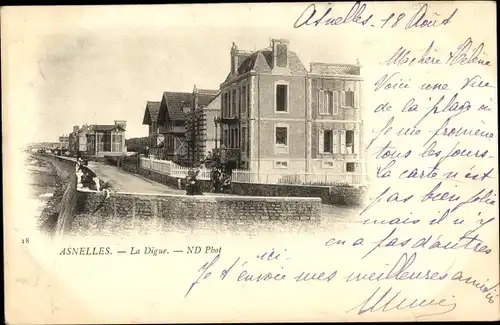 Asnelles 18 Août
Ma chère Hélène
Voici une vue
de la plage où
je me promène
tous les jours.
La carte n'est
pas bien jolie
mais il n'y
en a pas d'autres
ici
Je t'envoie mes meilleures amitiés
18
ASNELLES. — La Digue. — ND Phot